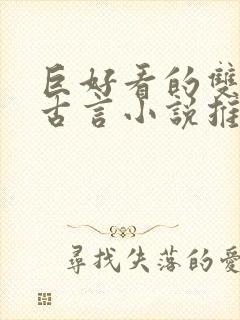 巨好看的雙
古言小說推
尋找失落的愛